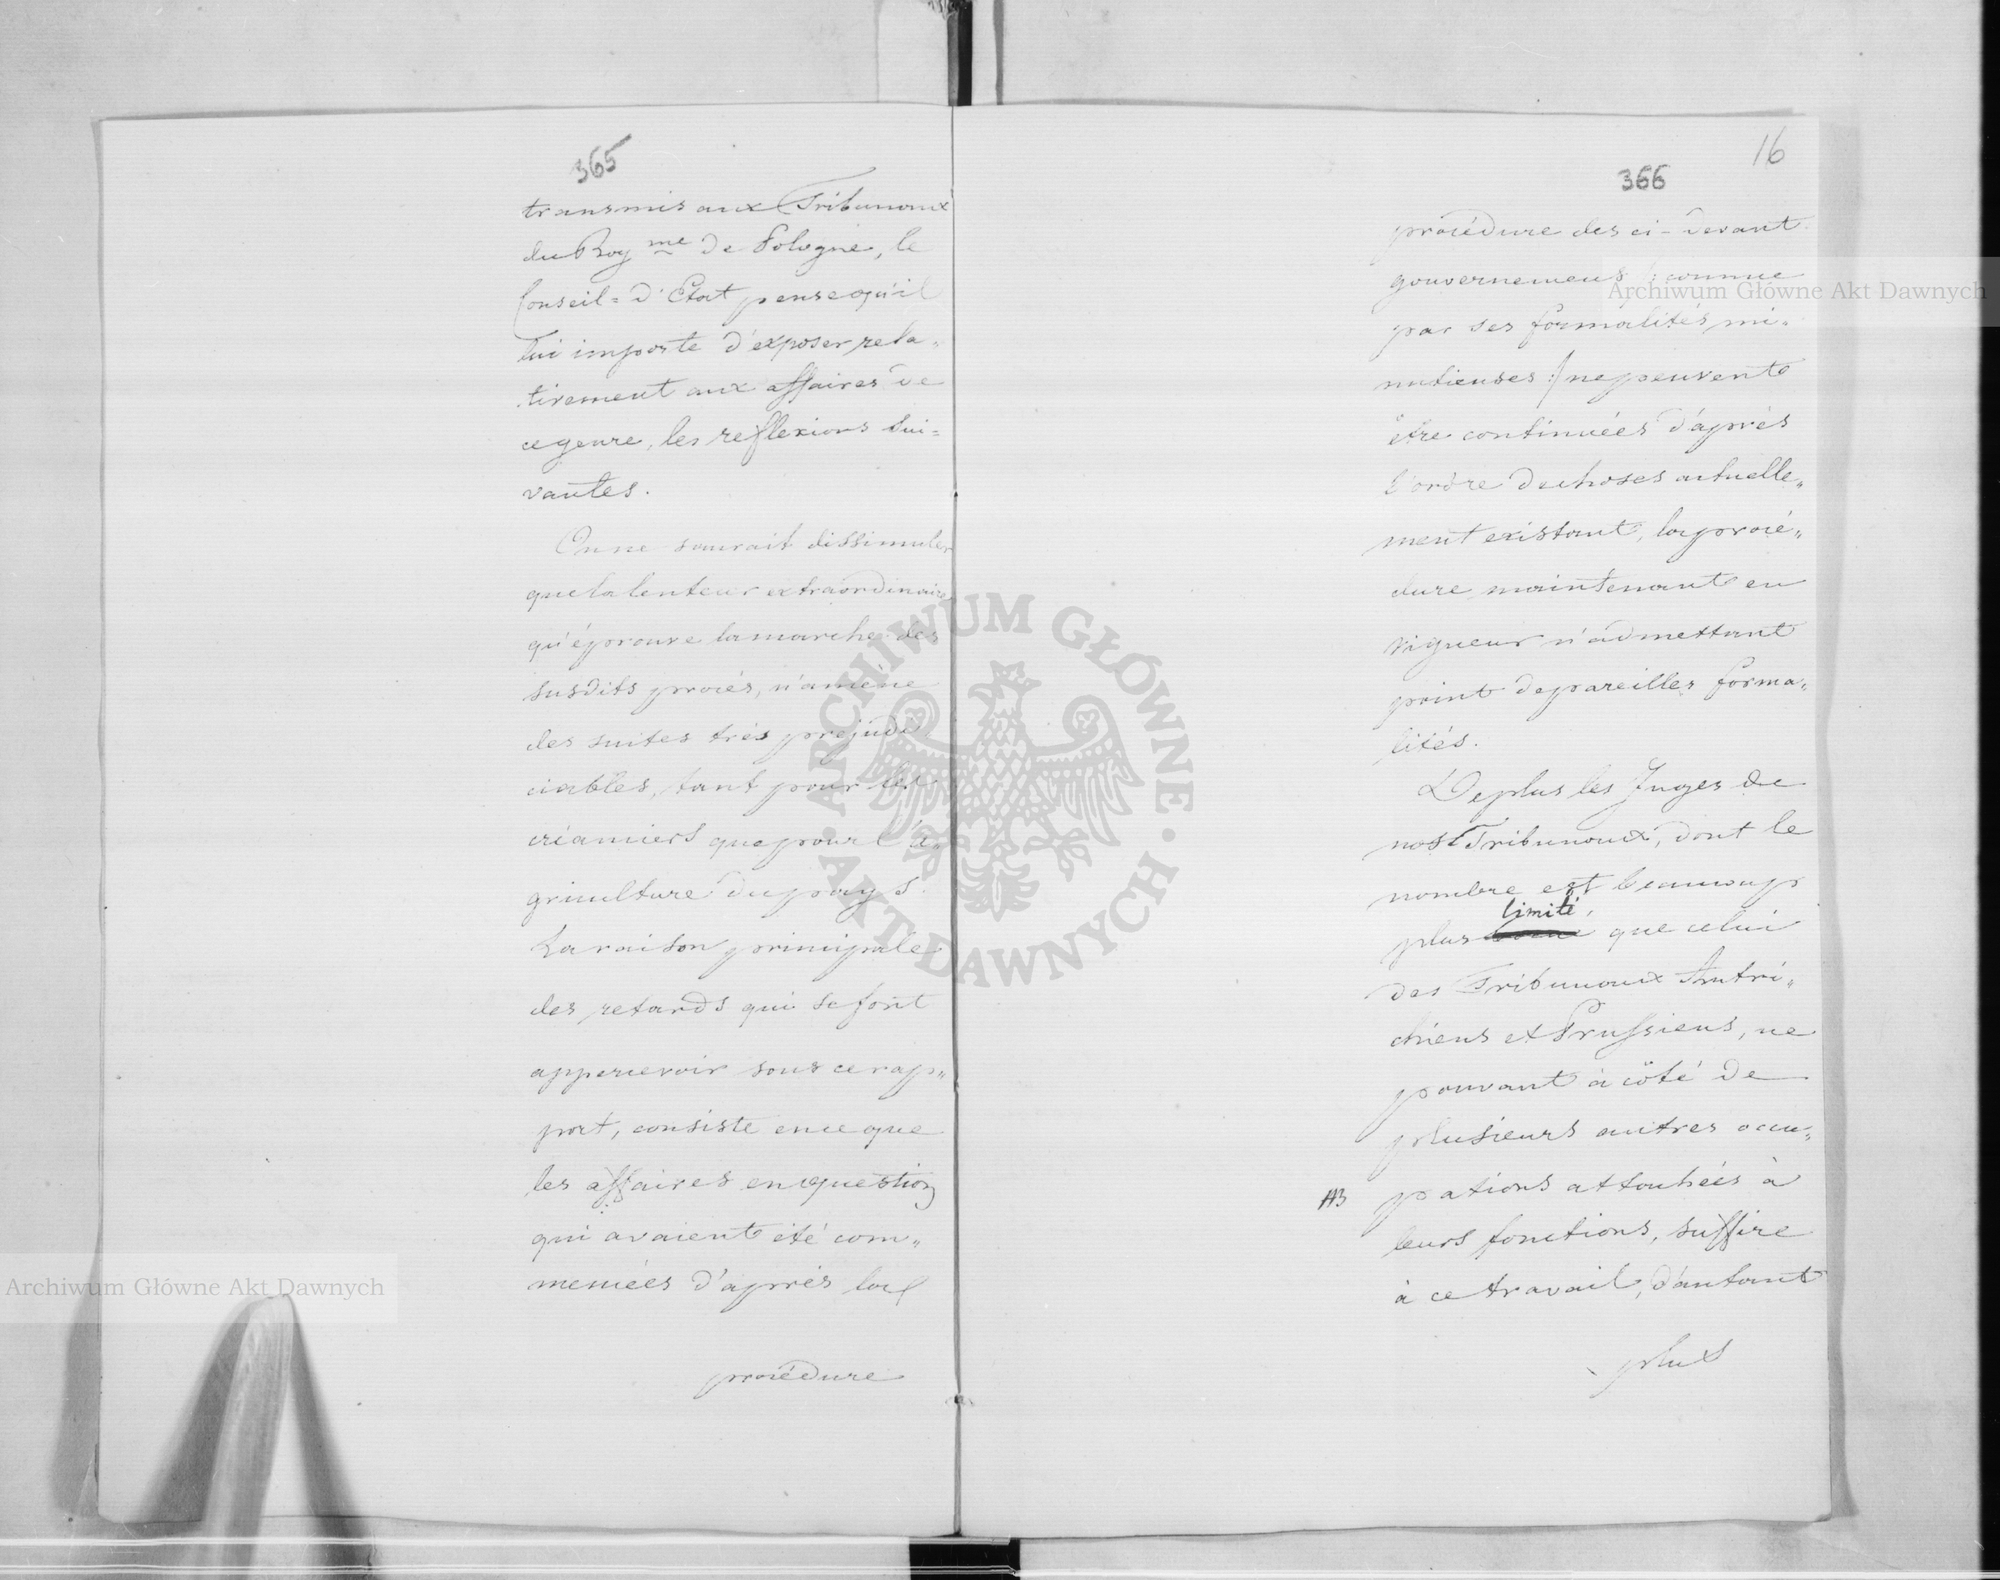 365
transmis aux Tribunaux
du Roy me de Pologne, le
Conseil = d'Etat pense qu'il
lui importe d'exposer rela„
tivement aux affaires de
ce genre, les reflexions sui=
vantes.
On ne saurait dissimuler
que la lenteur extraordinaire
qu'éprouve la marche des
susdits procés, n'amène
des suites trés préjudi
ciables, tant pour les
créanciers que pour l'a„
griculture du pays.
La raison principale
des retards qui se font
appercevoir sous ce rap„
port, consiste en ce que
les affaires en question
qui avaient été com„
mencées d'aprés la
procédure
16
366
procédure des ci-devant
gouvernemens /: comme
par ses formalités mi„
nutieuses :/ ne peuvent
être continuées d'aprés
l'ordre de choses actuelle„
ment existant, la procé„
dure maintenant en
vigueur n'admettant
point de pareilles forma„
lités.
De plus les Juges de
nos Tribunaux, dont le
nombre est beaucoup
limité,
plus que celui
des Tribunaux Autri„
chiens et Prussiens, ne
pouvant à côté de
plusieurs autres occu„
pations attachées à
leurs fonctions, suffire
à ce travail, d'autant
plus
Archiwum Główne Akt Dawnych
Archiwum Główne Akt Dawnych
ARCHIWUM GŁÓWNE · AKT DAWNYCH ·